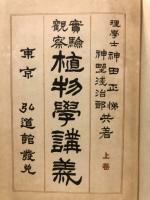 理學士 神田正悌
神野淺治郎 共著
實驗
觀察
植物學講義
上卷
東京 弘道館發兌